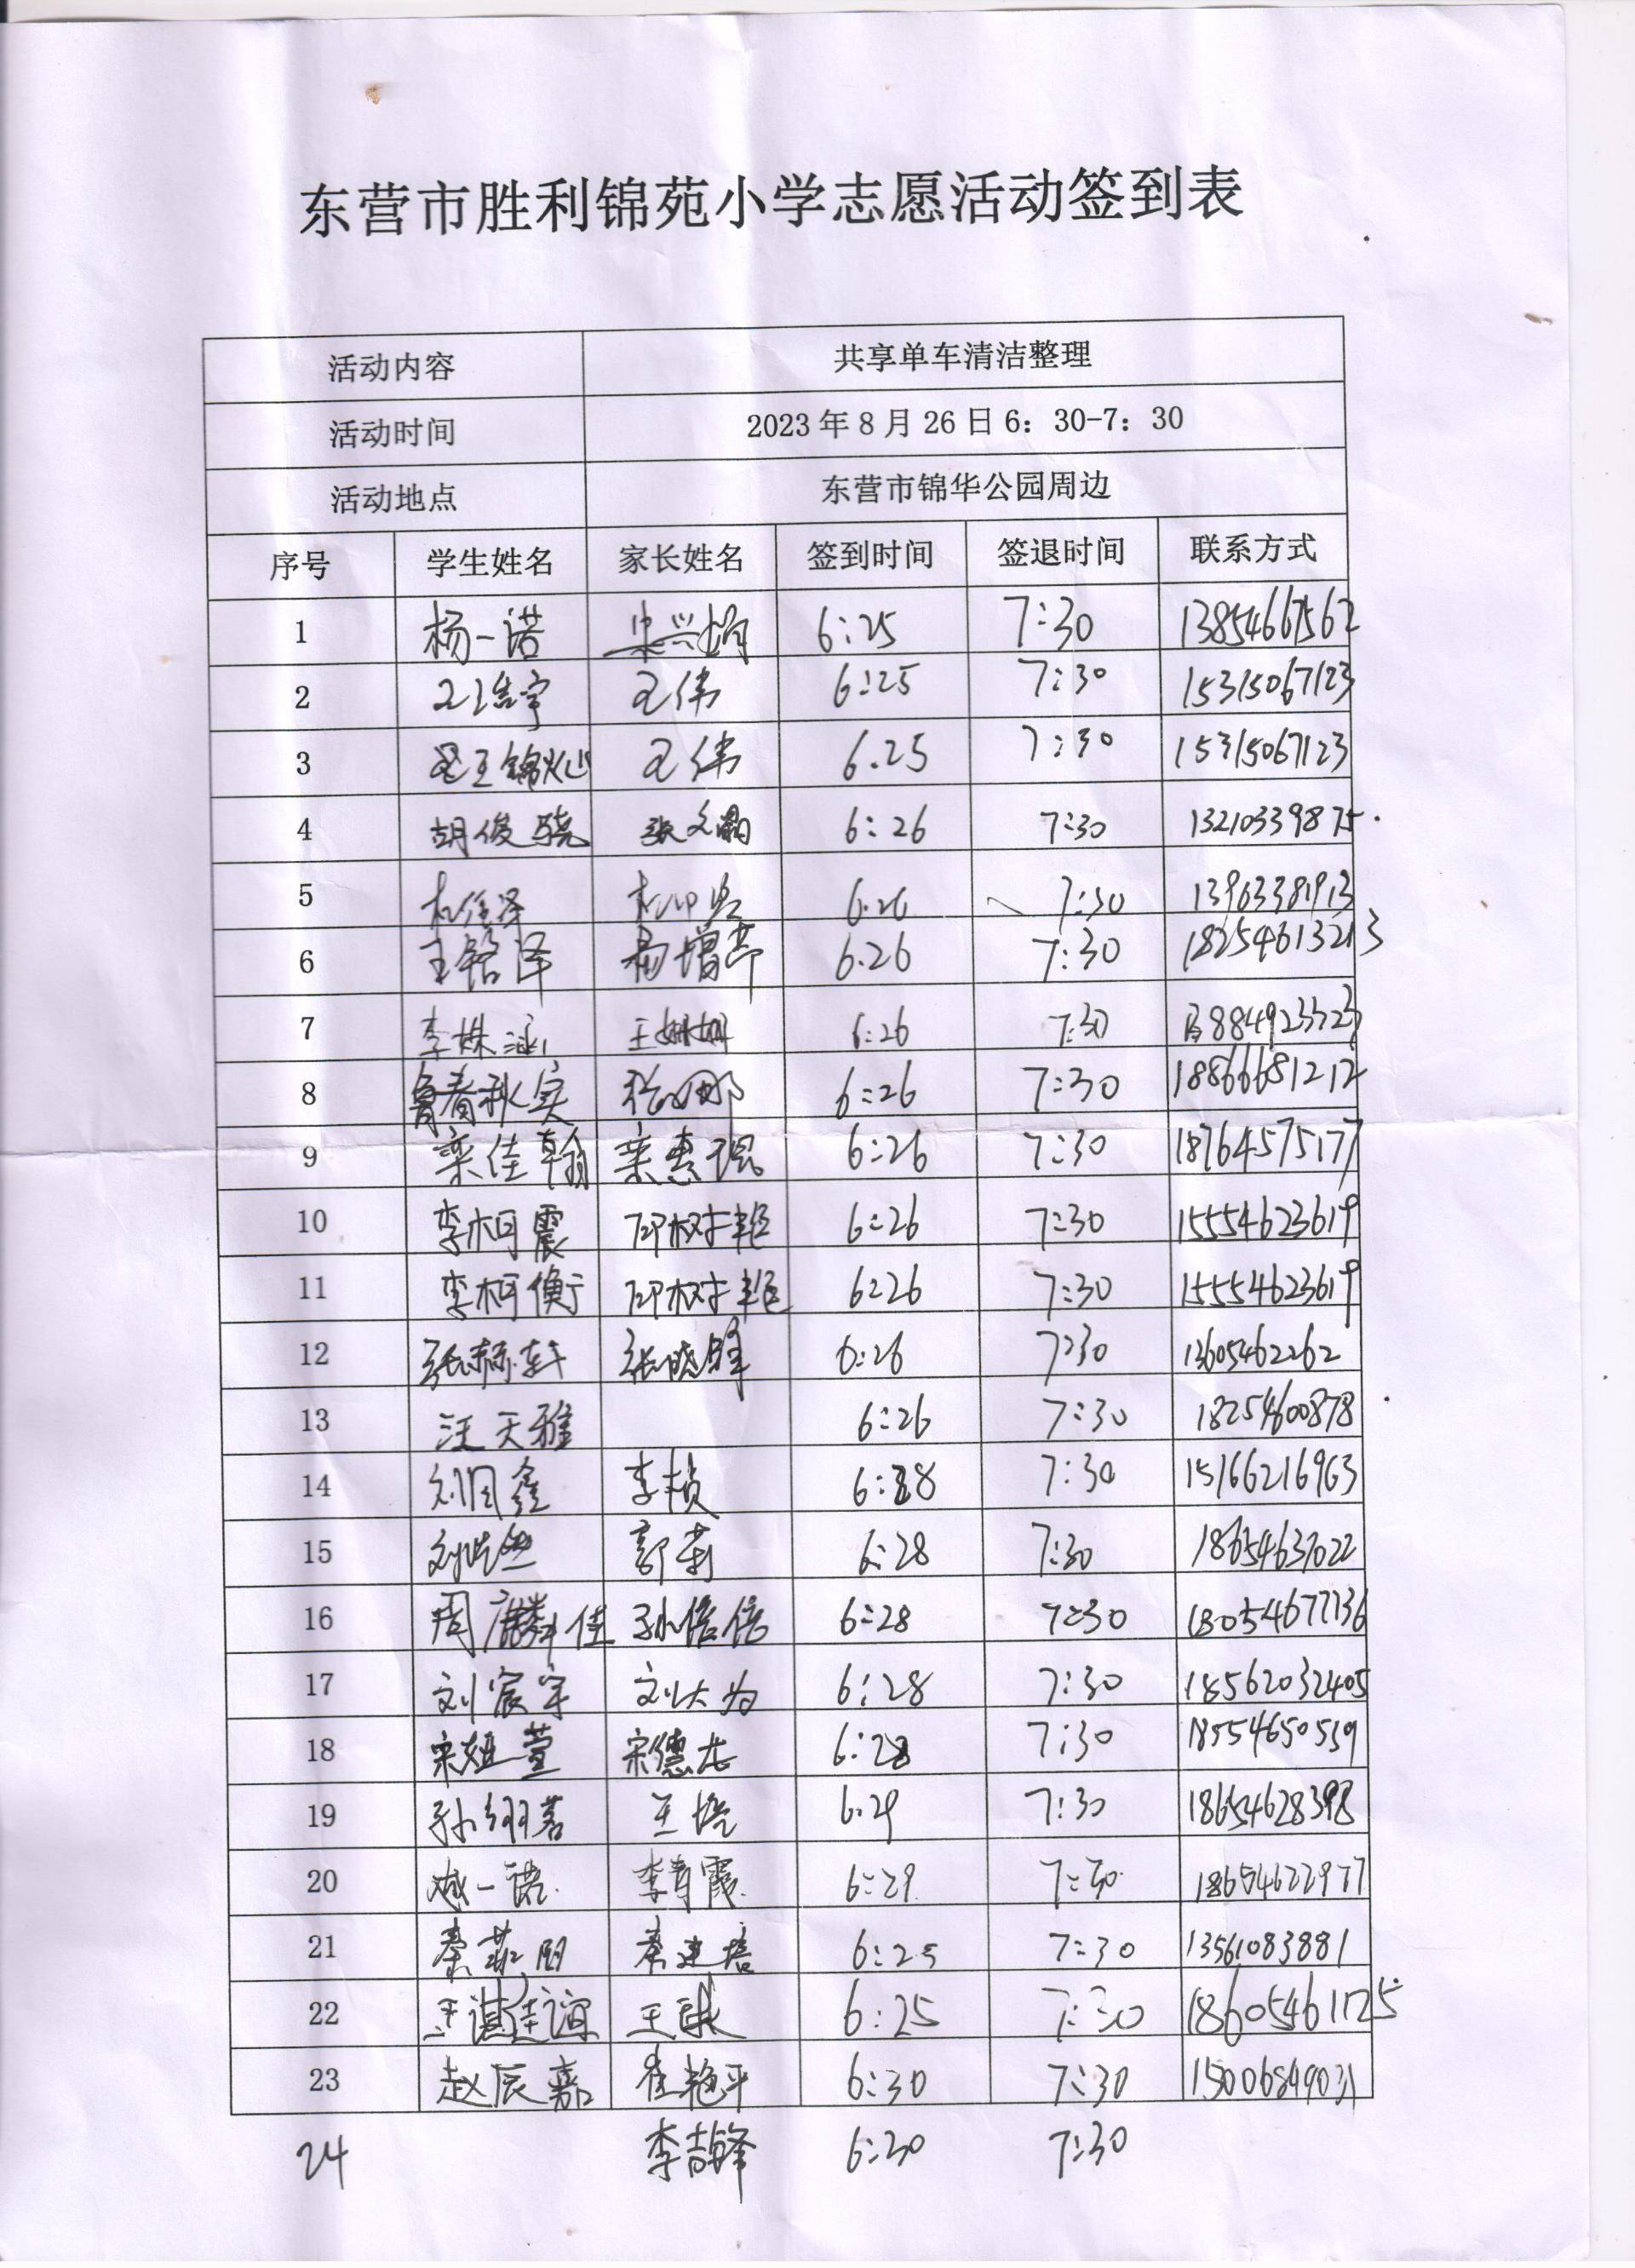 东营市胜利锦苑小学志愿活动签到表
活动内容 共享单车清洁整理
活动时间 2023年8月26日6：30-7：30
活动地点 东营市锦华公园周边
序号 学生姓名 家长姓名 签到时间 签退时间 联系方式
1 杨一诺 6:25 7:30 13854667562
2 王浩宇 王伟 6:25 7:30 15315067123
3 王伟 6.25 7:30 15315067123
4 胡俊骁 张文晶 6:26 7:30 13210339875
5 6.26 7:30 13963381913
6 王铭泽 杨增苹 6.26 7:30 18254613213
7 李姝涵 王姗姗 6:26 7:30
8 鲁春秋实 张娜 6:26 7:30 18866681212
9 栾佳翰 栾惠琨 6:26 7:30 18764575177
10 李柯震 邵树艳 6:26 7:30 15554623619
11 李柯衡 邵树艳 6:26 7:30 15554623619
12 张赫轩 张晓锋 6:26 7:30 13605462262
13 汪天雅 6:26 7:30 18254600878
14 李桢 6:28 7:30 15166216963
15 郭莉 6:28 7:30 18654637022
16 周麟佳 孙倍倍 6:28 7:30 18054677136
17 刘宸宇 刘大为 6:28 7:30 18562032405
18 宋姮萱 宋德志 6:28 7:30 18554650539
19 孙翊茗 王悦 6.29 7:30 18654628398
20 臧一诺 李青霞 6:29 7:30 18654622977
21 秦菲玥 秦建培 6:25 7:30 13561083881
22 6:25 7:30 18605461125
23 赵辰嘉 崔艳平 6:30 7:30 15006849031
24 李吉锋 6:30 7:30